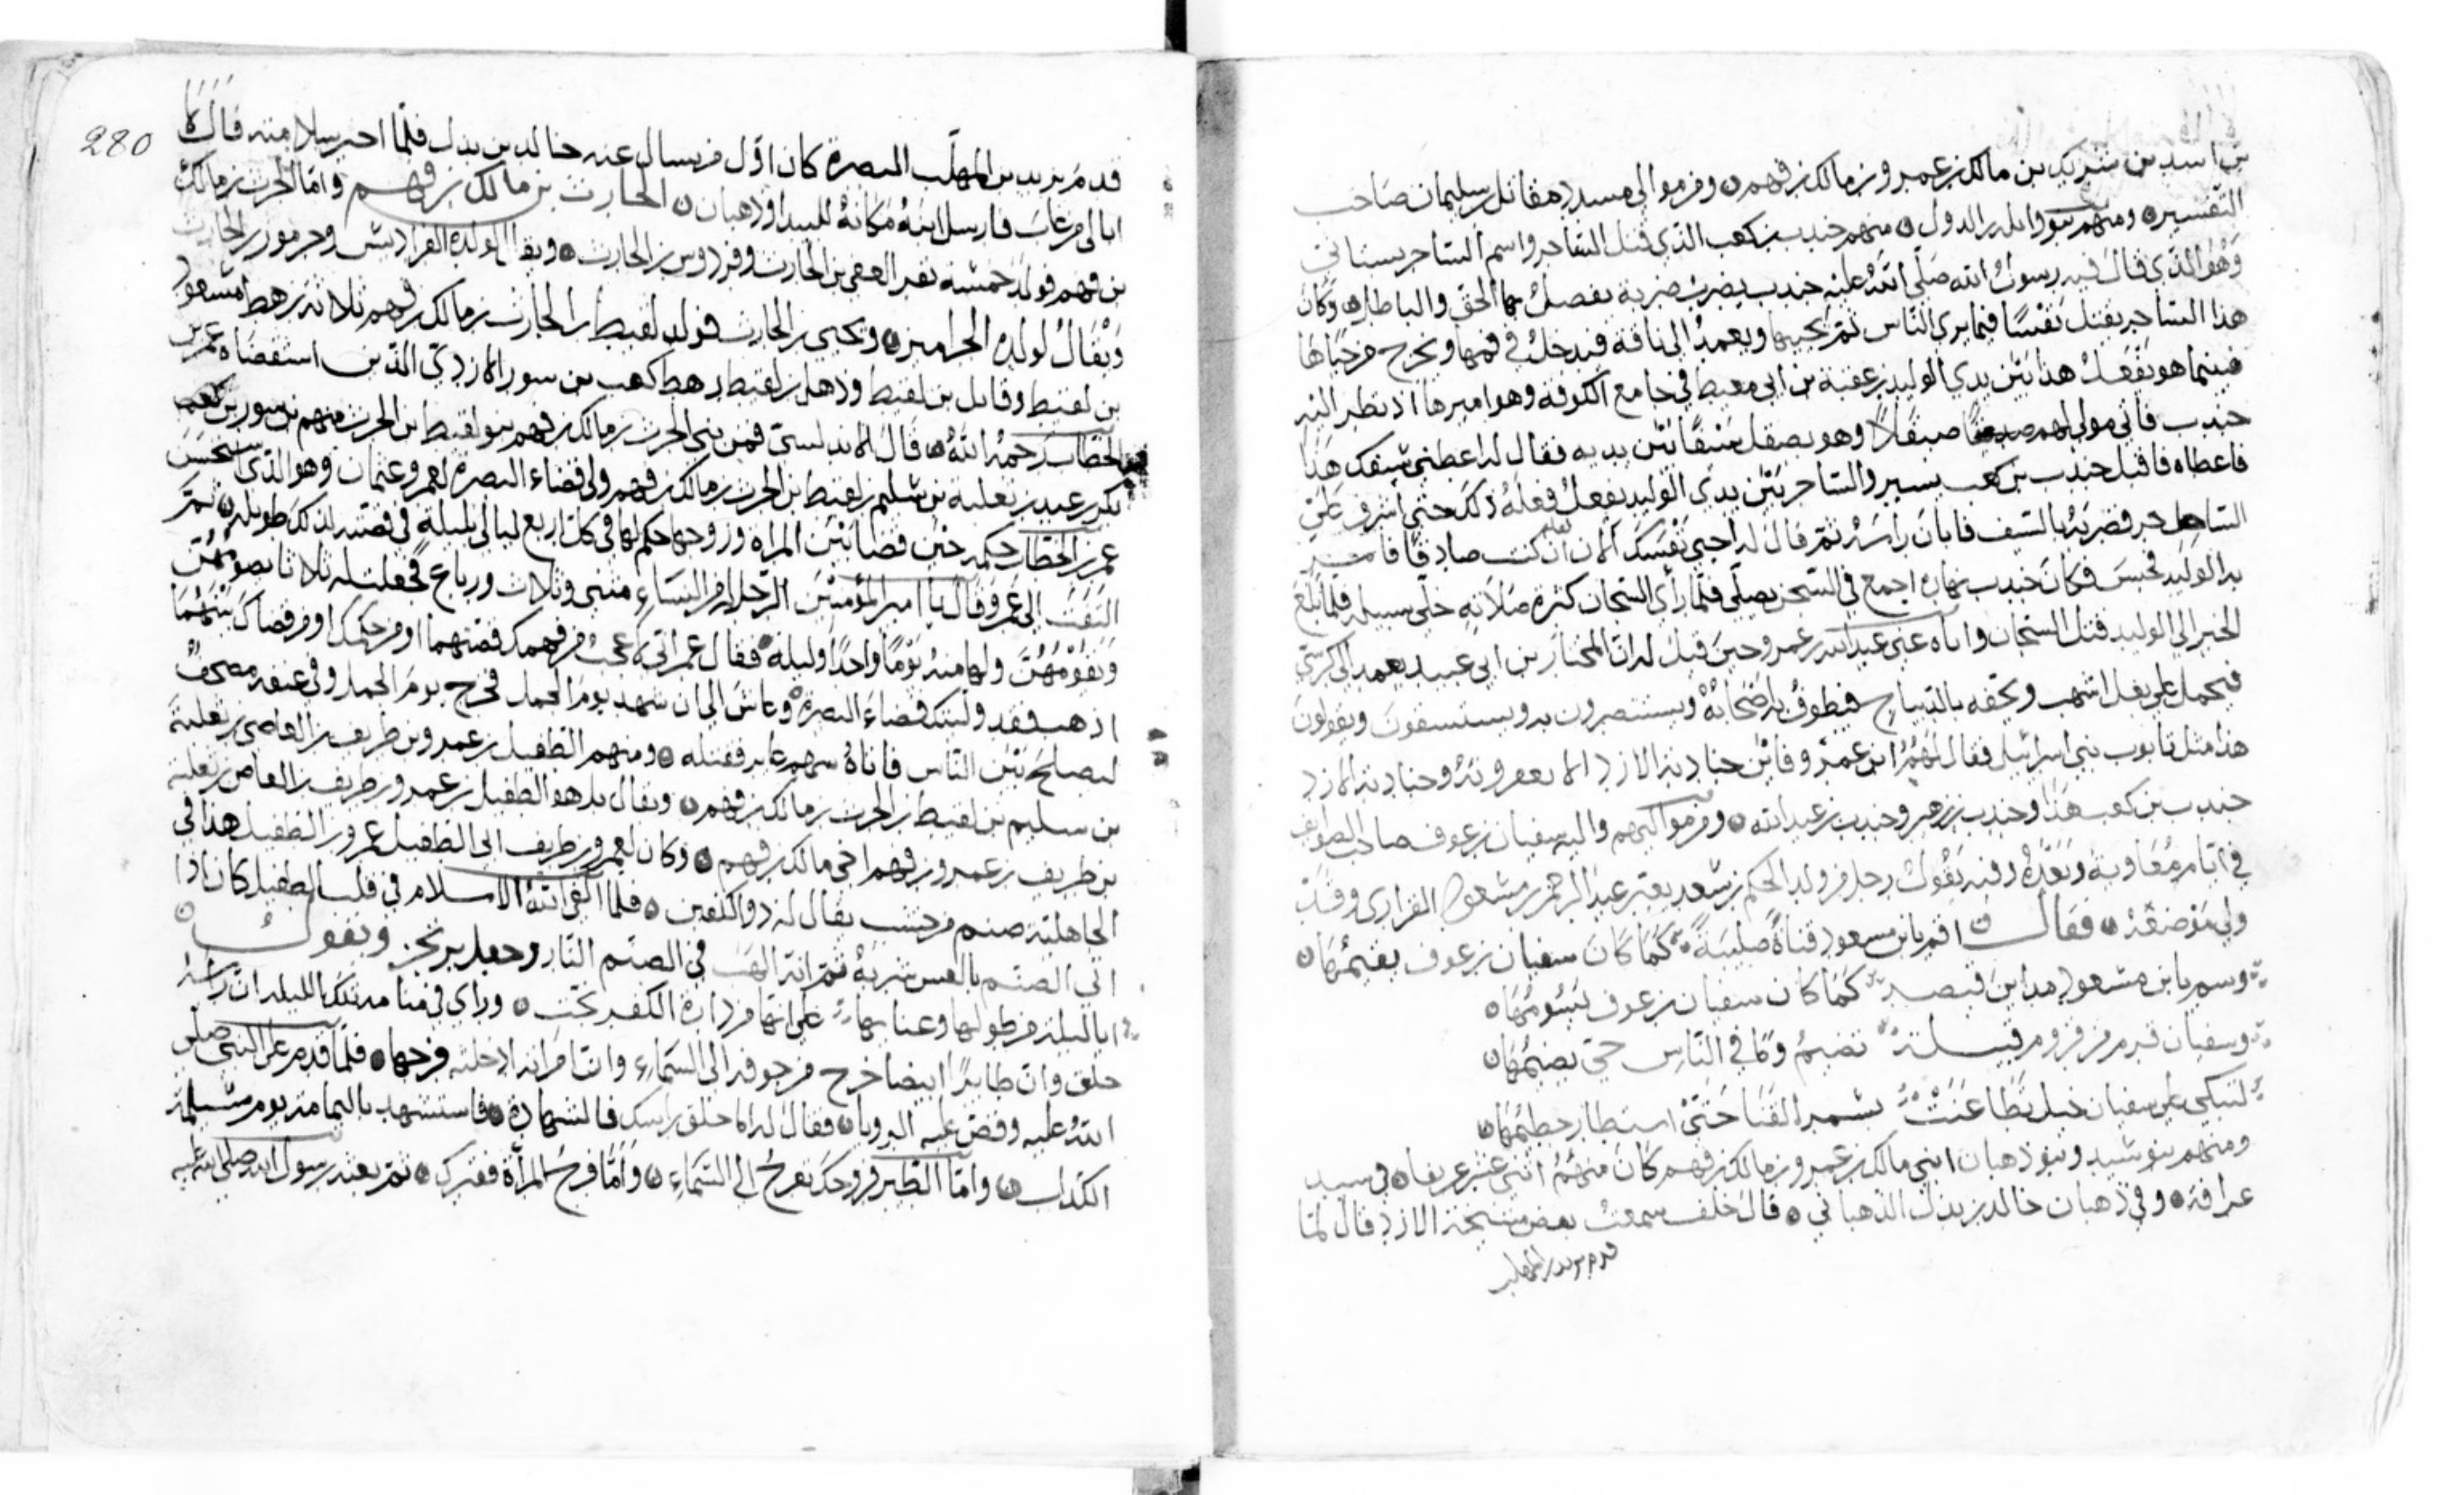 بن اسد بن شريك بن مالك بن عمرو بن مالك بن فهم ومن موالي مسدد مقاتل بن سليمان صاحب
التفسير ومنهم بنو وايل بن الدول منهم جندب بن كعب الذي قتل الساحر واسم الساحر بستاني
وهو الذي قال فيه رسول الله صلى الله عليه جندب يضرب ضربة يفصل بها الحق والباطل وكان
هذا الساحر يقتل نفسًا فيما يرى الناس ثم يحييها ويعمد الى ناقة فيدخل في فمها ويخرج من حياها
فبينما هو يفعل هذا بين يدي الوليد بن عقبة بن ابي معيط في جامع الكوفة وهو اميرها اذ نظر اليه
جندب فاتى مولى لهم صيقلاً وهو يصقل سيفًا بين يديه فقال له اعطني سيفك هذا
فاعطاه فاقبل جندب بن كعب يسير والساحر بين يدي الوليد يفعل فعله ذلك حتى اشرف على
الساحر فضربه بالسيف فابان راسه ثم قال له احيي نفسك الان ان كنت صادقًا فامر
به الوليد فحبس فكان جندب نهاره اجمع في السجن يصلي فلما رأى السجان كثرة صلاته خلى سبيله فلما بلغ
الخبر الى الوليد قتل السجان واياه عنى عبد الله بن عمرو حين قيل له ان المختار بن ابي عبيد يعمد الى كرسي
فيحمل على بغل اشهب ويحفه بالديباج فيطوف به اصحابه ويستنصرون به ويستسقون ويقولون
هذا مثل تابوت بني اسرائيل فقال لهم ابن عمرو فاين جنادبة الازد لا يعقرونه وجنادبة الازد
جندب بن كعب هذا وجندب بن زهير وجندب بن عبد الله ومن مواليهم واليه سفيان بن عوف صاحب الصوايف
في ايام معاوية وبعده وفيه يقول رجل من ولد الحكم بن سعد يعير عبد الرحمن بن مسعود الفزاري وقد
ولي موضعه فقال اقم يا ابن مسعود قناة صليبة كما كان سفيان بن عوف يقيمها
وسم يا ابن مسعود مداين قيصر كما كان سفيان بن عوف يسومها
وسفيان قرم من قروم قبيلة تضيم وما في الناس حي يضيمها
لتبكي على سفيان خيل تطاعنت بسمر القنا حتى استطار حطيمها
ومنهم بنو شبيد وبنو ذهبان ابني مالك بن عمرو بن مالك بن فهم كان منهم اثني عشر عريفا في سبيد
عرافة وفي ذهبان خالد بن يدل الذهباني قال خلف سمعت بعض مشيخة الازد قال لما
قدم يزيد بن المهلب
280
قدم يزيد بن المهلب البصرة كان اول من يسال عنه خالد بن يدل فلما اخبر بسلامته قال
ابا لي من غاب فارسل ابنه مكانه للبيد اوذهبان الحارث بن مالك بن فهم واما الحرث بن مالك
بن فهم فولد خمسة نفر العقى بن الحارث وفردوس بن الحارث ويقال لولده الفراديس وجرموز بن الحارث
ويقال لولده الجراميز ويحيى بن الحارث فولد لقيط بن الحارث بن مالك بن فهم ثلاثة رهط مسعود
بن لقيط وقايل بن لقيط وذهل بن لقيط رهط كعب بن سور الازدي الذين استقضاه عمر بن
الخطاب رحمه الله قال فمن بني الحرث بن مالك بن فهم بنو لقيط بن الحرث منهم بن سور بن كعب
بكر بن عبيد بن ثعلبة بن سليم بن لقيط بن الحرث بن مالك بن فهم ولي قضاء البصرة لعمر وعثمان وهو الذي استحسن
عمر بن الخطاب حكمه حين قضا بين المراة وزوجها حكم لها في كل اربع ليالي بليلة في قصته لذلك طويلة ثم
التفت الى عمر وقال يا امير المؤمنين الرجل له من النساء مثنى وثلاث ورباع فجعلت له ثلاثا يصومهن
ويقومهن ولها منه يومًا واحدًا وليلة فقال عمر اني لا عجب من فهمك قصتهما او من حكمك او من قضاك بينهما
اذهب فقد وليتك قضاء البصرة وعاش الى ان شهد يوم الجمل فخرج يوم الجمل وفي عنقه مصحف
ليصلح بين الناس فاتاه سهم عاير فقتله ومنهم الطفيل بن عمرو بن طريف بن العاصي بن ثعلبة
بن سليم بن لقيط بن الحرث بن مالك بن فهم ويقال بل هو الطفيل بن عمرو بن طريف بن العاص بن ثعلبة
بن طريف بن عمرو بن فهم اخي مالك بن فهم وكان لعمرو بن طريف ابي الطفيل عمرو بن الطفيل هذا في
الجاهلية صنم من خشب يقال له ذو الكفين فلما القى الله الاسلام في قلب الطفيل كان اذا
اتى الصنم بالعس شربه ثم انه الهب في الصنم النار وجعل يرتجز ويقول
ايا ليلة من طولها وعنايها على انها من دارة الكفر نجت وراى في منامه تلك الليلة ان راسه
حلق وان طايرًا ابيضا خرج من جوفه الى السماء وان امراة ادخلته فرجها فلما قدم على النبي صلى
الله عليه وقص عليه الرويا فقال له اما حلق راسك فالشهادة فاستشهد باليمامة يوم مسيلمة
الكذاب واما الطير فروحك يعرج الى السماء واما فرج المرأة فقبرك ثم بعثه رسول الله صلى الله عليه